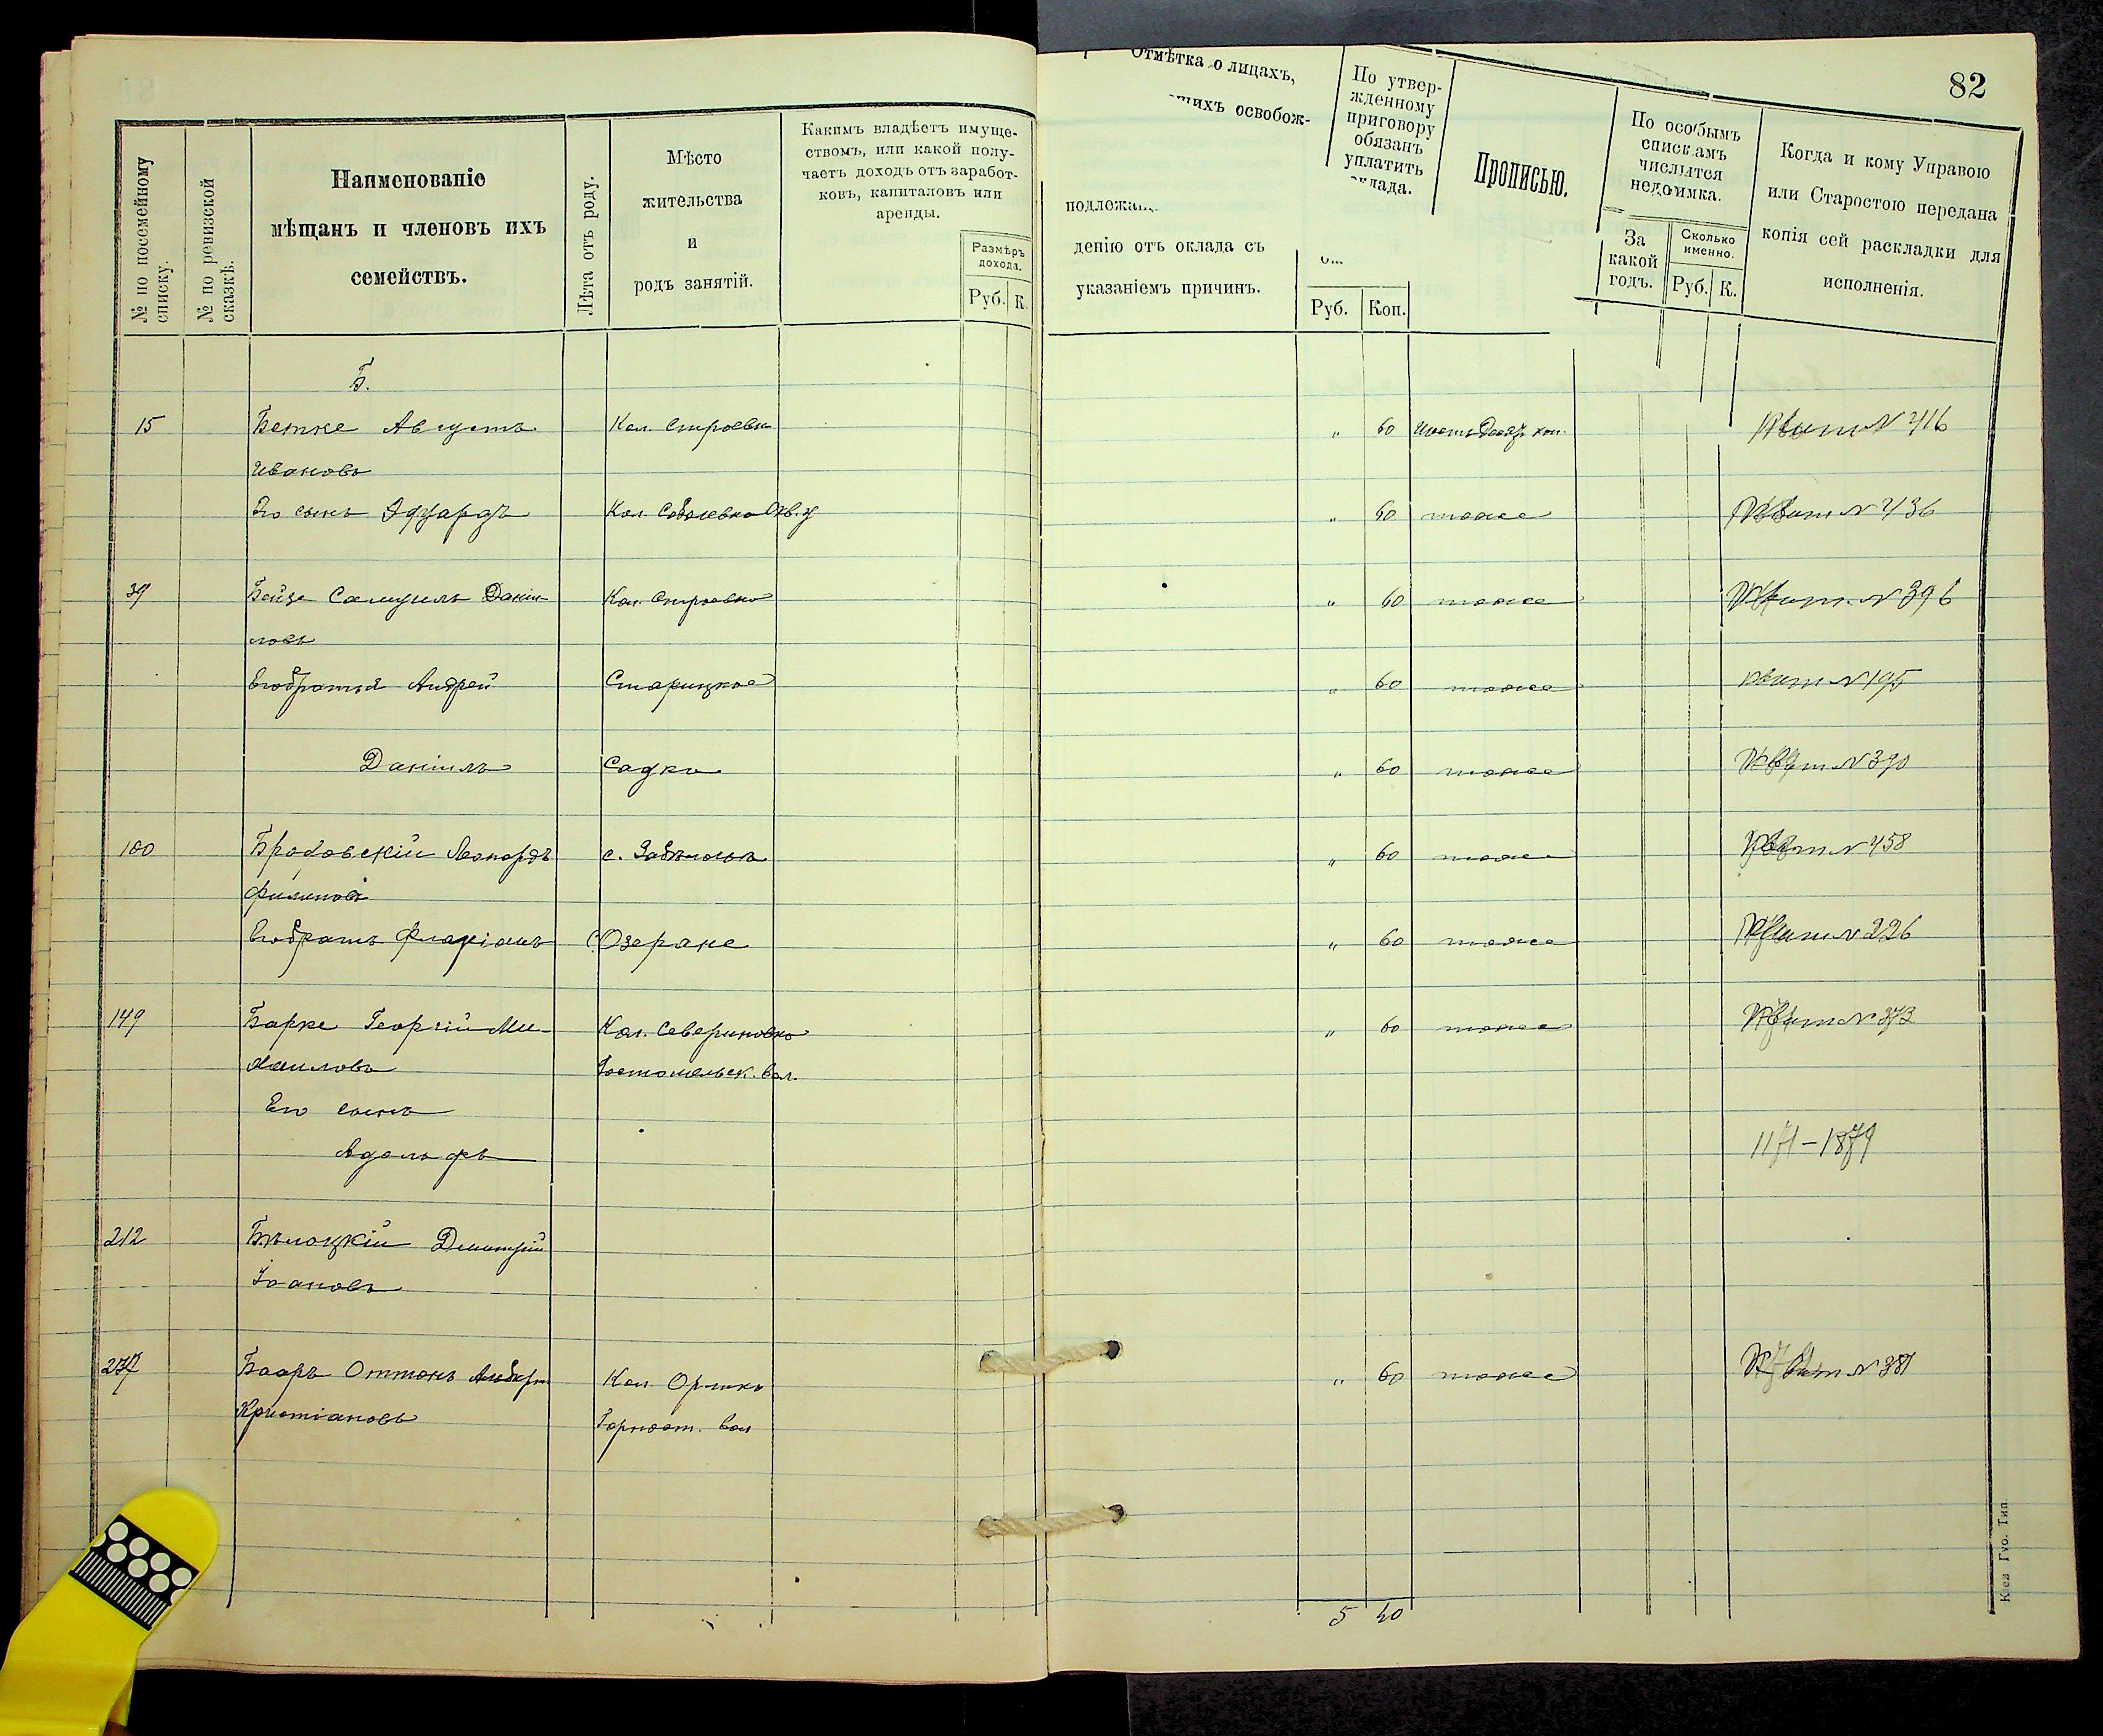 82
№ по посемейному списку.
№ по ревизской сказкѣ.
Наименованіе
мѣщанъ и членовъ ихъ
семействъ.
Лѣта отъ роду.
Мѣсто
жительства
и
родъ занятій.
Какимъ владѣетъ имуще-
ствомъ, или какой полу-
чаетъ доходъ отъ заработ-
ковъ, капиталовъ или
аренды.
Размѣръ
дохода.
Руб. К.
Отмѣтка о лицахъ,
подлежащихъ освобож-
денію отъ оклада съ
указаніемъ причинъ.
По утвер-
жденному
приговору
обязанъ
уплатить
оклада.
Руб. Коп.
Прописью.
По особымъ
спискамъ
числится
недоимка.
За
какой
годъ.
Сколько
именно.
Руб. К.
Когда и кому Управою
или Старостою передана
копія сей раскладки для
исполненія.
Б.
15 Бетке Августъ Кол. " 60 Шестьдесятъ коп. Квит № 416
Ивановъ
Его сынъ Эдуардъ Кол. " 60 тоже Квит № 436
39 Бейзе Самуилъ Дании- Кол. " 60 тоже Квит. № 396
ловъ
Его братья Андрей Старицкое " 60 тоже квит № 195
Даніилъ Садки " 60 тоже Квит № 390
100 Бродовскій Леонардъ с. " 60 тоже Квит № 458
Филиповъ
Его братъ с. Озеране " 60 тоже Квит № 226
149 Барке Георгій Ми- Кол. Севериновка " 60 тоже Квит № 373
хаиловъ Гостомельск. вол.
Его сынъ
Адольфъ 1171-1879
212 Бѣлоцкій Дмитрій
Іоановъ
277 Бааръ Оттонъ Кол. " 60 тоже Квит № 381
Христіановъ Горност. вол
5 40
Кіев Губ. Тип.